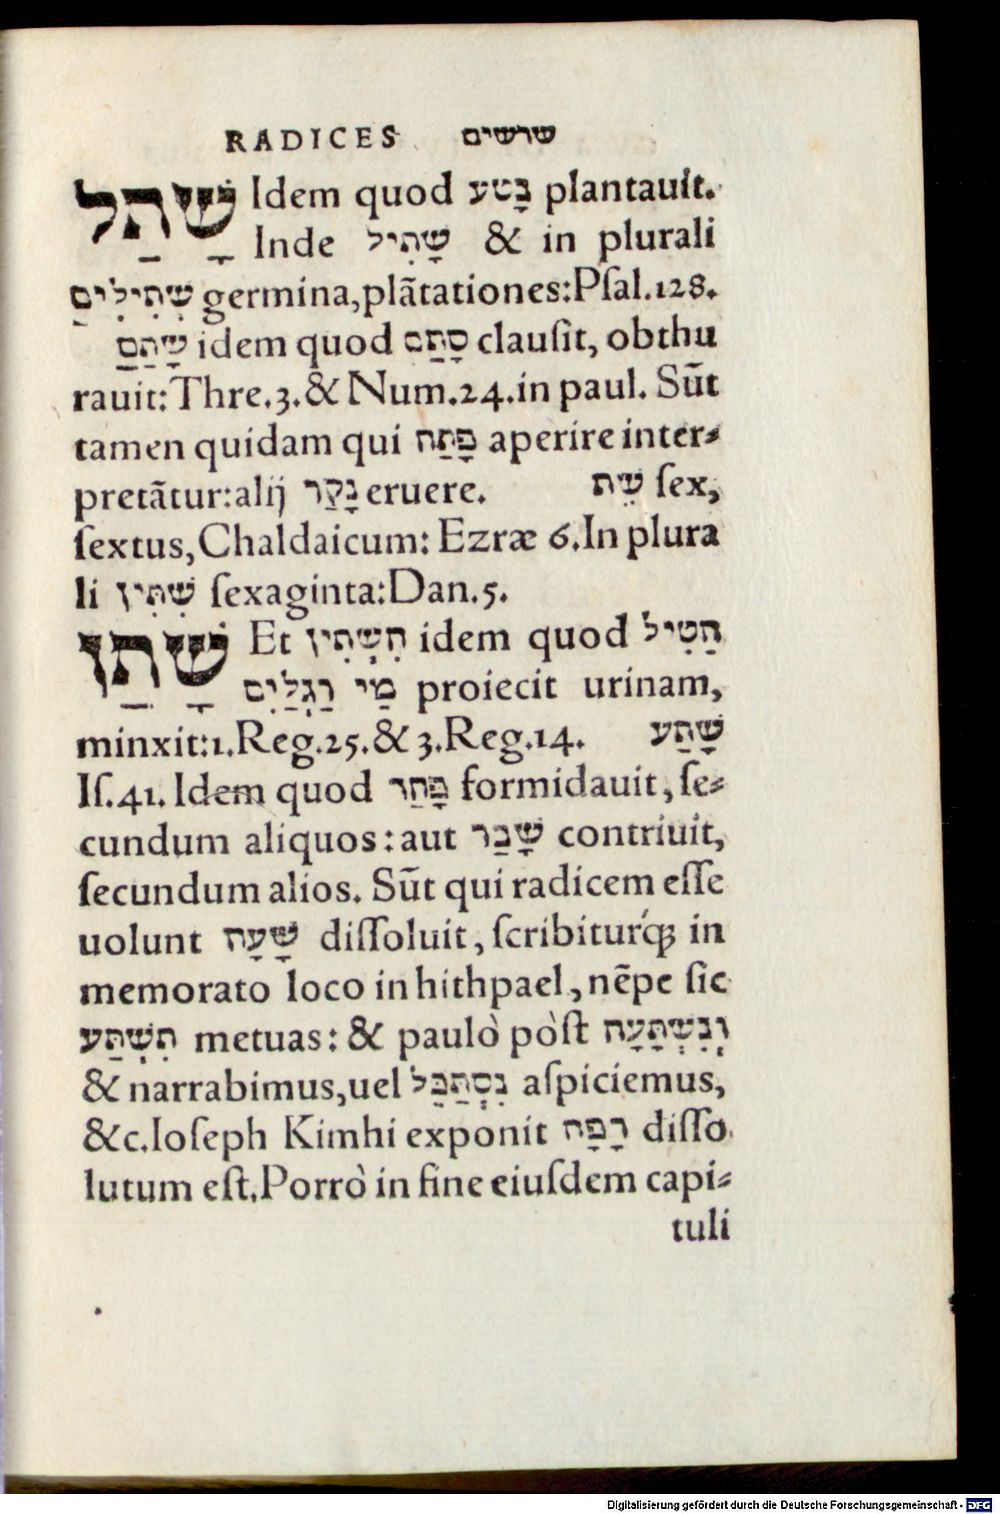 RADICES שרשים
שָׁתַל Idem quod נָטַע plantauit.
Inde שָׁתִיל & in plurali
שְׁתִילִים germina,plãtationes:Pſal.128.
שָׁתַם idem quod סָתַם clauſit, obthu
rauit: Thre.3.& Num.24.in paul. Sũt
tamen quidam qui פָּתַח aperire inter⸗
pretãtur:alij נָקַר eruere. שֵׁת ſex,
ſextus,Chaldaicum: Ezræ 6.In plura
li שִׁתִּין ſexaginta:Dan.5.
שָׁתַן Et הִשְׁתִּין idem quod הֵטִיל
מֵי רַגְלַיִם proiecit urinam,
minxit:1.Reg.25.& 3.Reg.14. שָׁתַע
Iſ.41. Idem quod פָּחַר formidauit, ſe⸗
cundum aliquos: aut שָׁבַר contriuit,
ſecundum alios. Sũt qui radicem eſſe
uolunt שָׁעָה diſſoluit, ſcribiturq́ꝫ in
memorato loco in hithpael, nẽpe ſic
תִּשְׁתַּע metuas: & paulò pòſt וְנִשְׁתָּעָה
& narrabimus,uel נִסְתַּכֵּל aſpiciemus,
&c.Ioſeph Kimhi exponit רָפָה diſſo
lutum eſt.Porrò in fine eiuſdem capi⸗
tuli
Digitalisierung gefördert durch die Deutsche Forschungsgemeinschaft - DFG